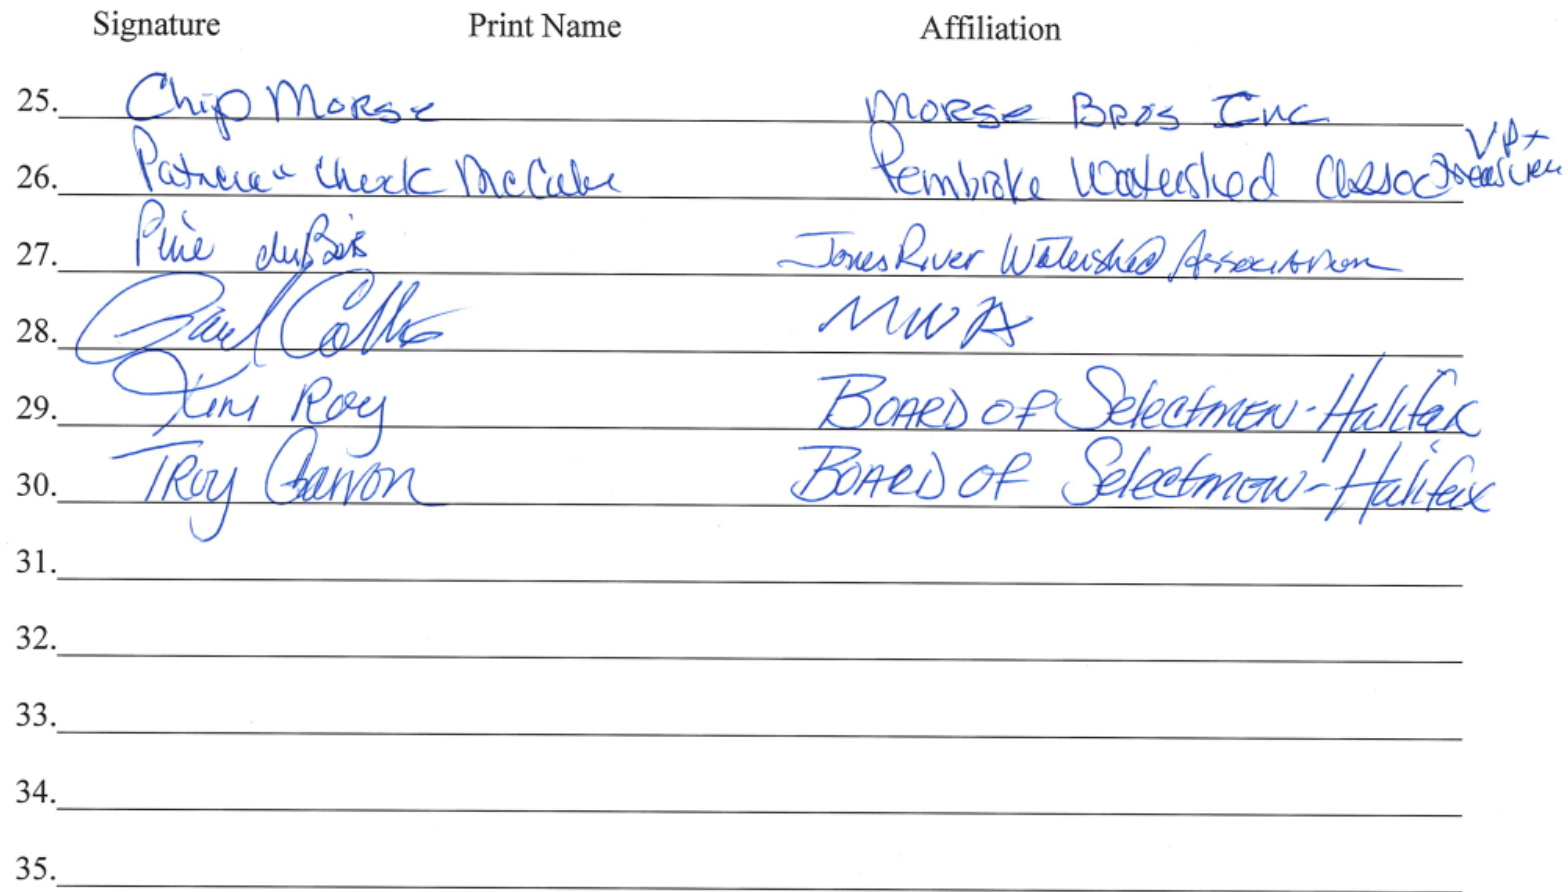 Signature Print Name Affiliation
25. Chip Morse Morse Bros Inc
26. Patricia & Chuck McCabe Pembroke Watershed Assoc VP + Treasurer
27. Pine duBois Jones River Watershed Association
28. Paul Collis MWA
29. Kim Roy Board of Selectmen - Halifax
30. Troy Garron Board of Selectmen - Halifax
31.
32.
33.
34.
35.